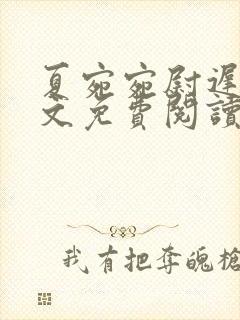 夏宛宛尉遲
文免費閱讀
我有把奪魄槍